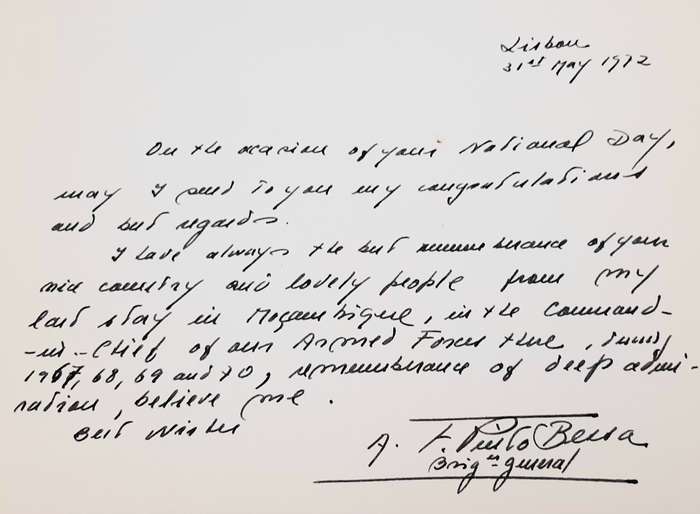 Lisbon
31st May 1972
On the occasion of your National Day,
may I send to you my congratulations
and best regards.
I have always the best remembrance of your
nice country and lovely people from my
last stay in Moçambique, in the Command-
-in-Chief of our Armed Forces there, during
1967, 68, 69 and 70, remembrance of deep admi-
ration, believe me.
Best Wishes
A. F. Pinto Bessa
Brign general